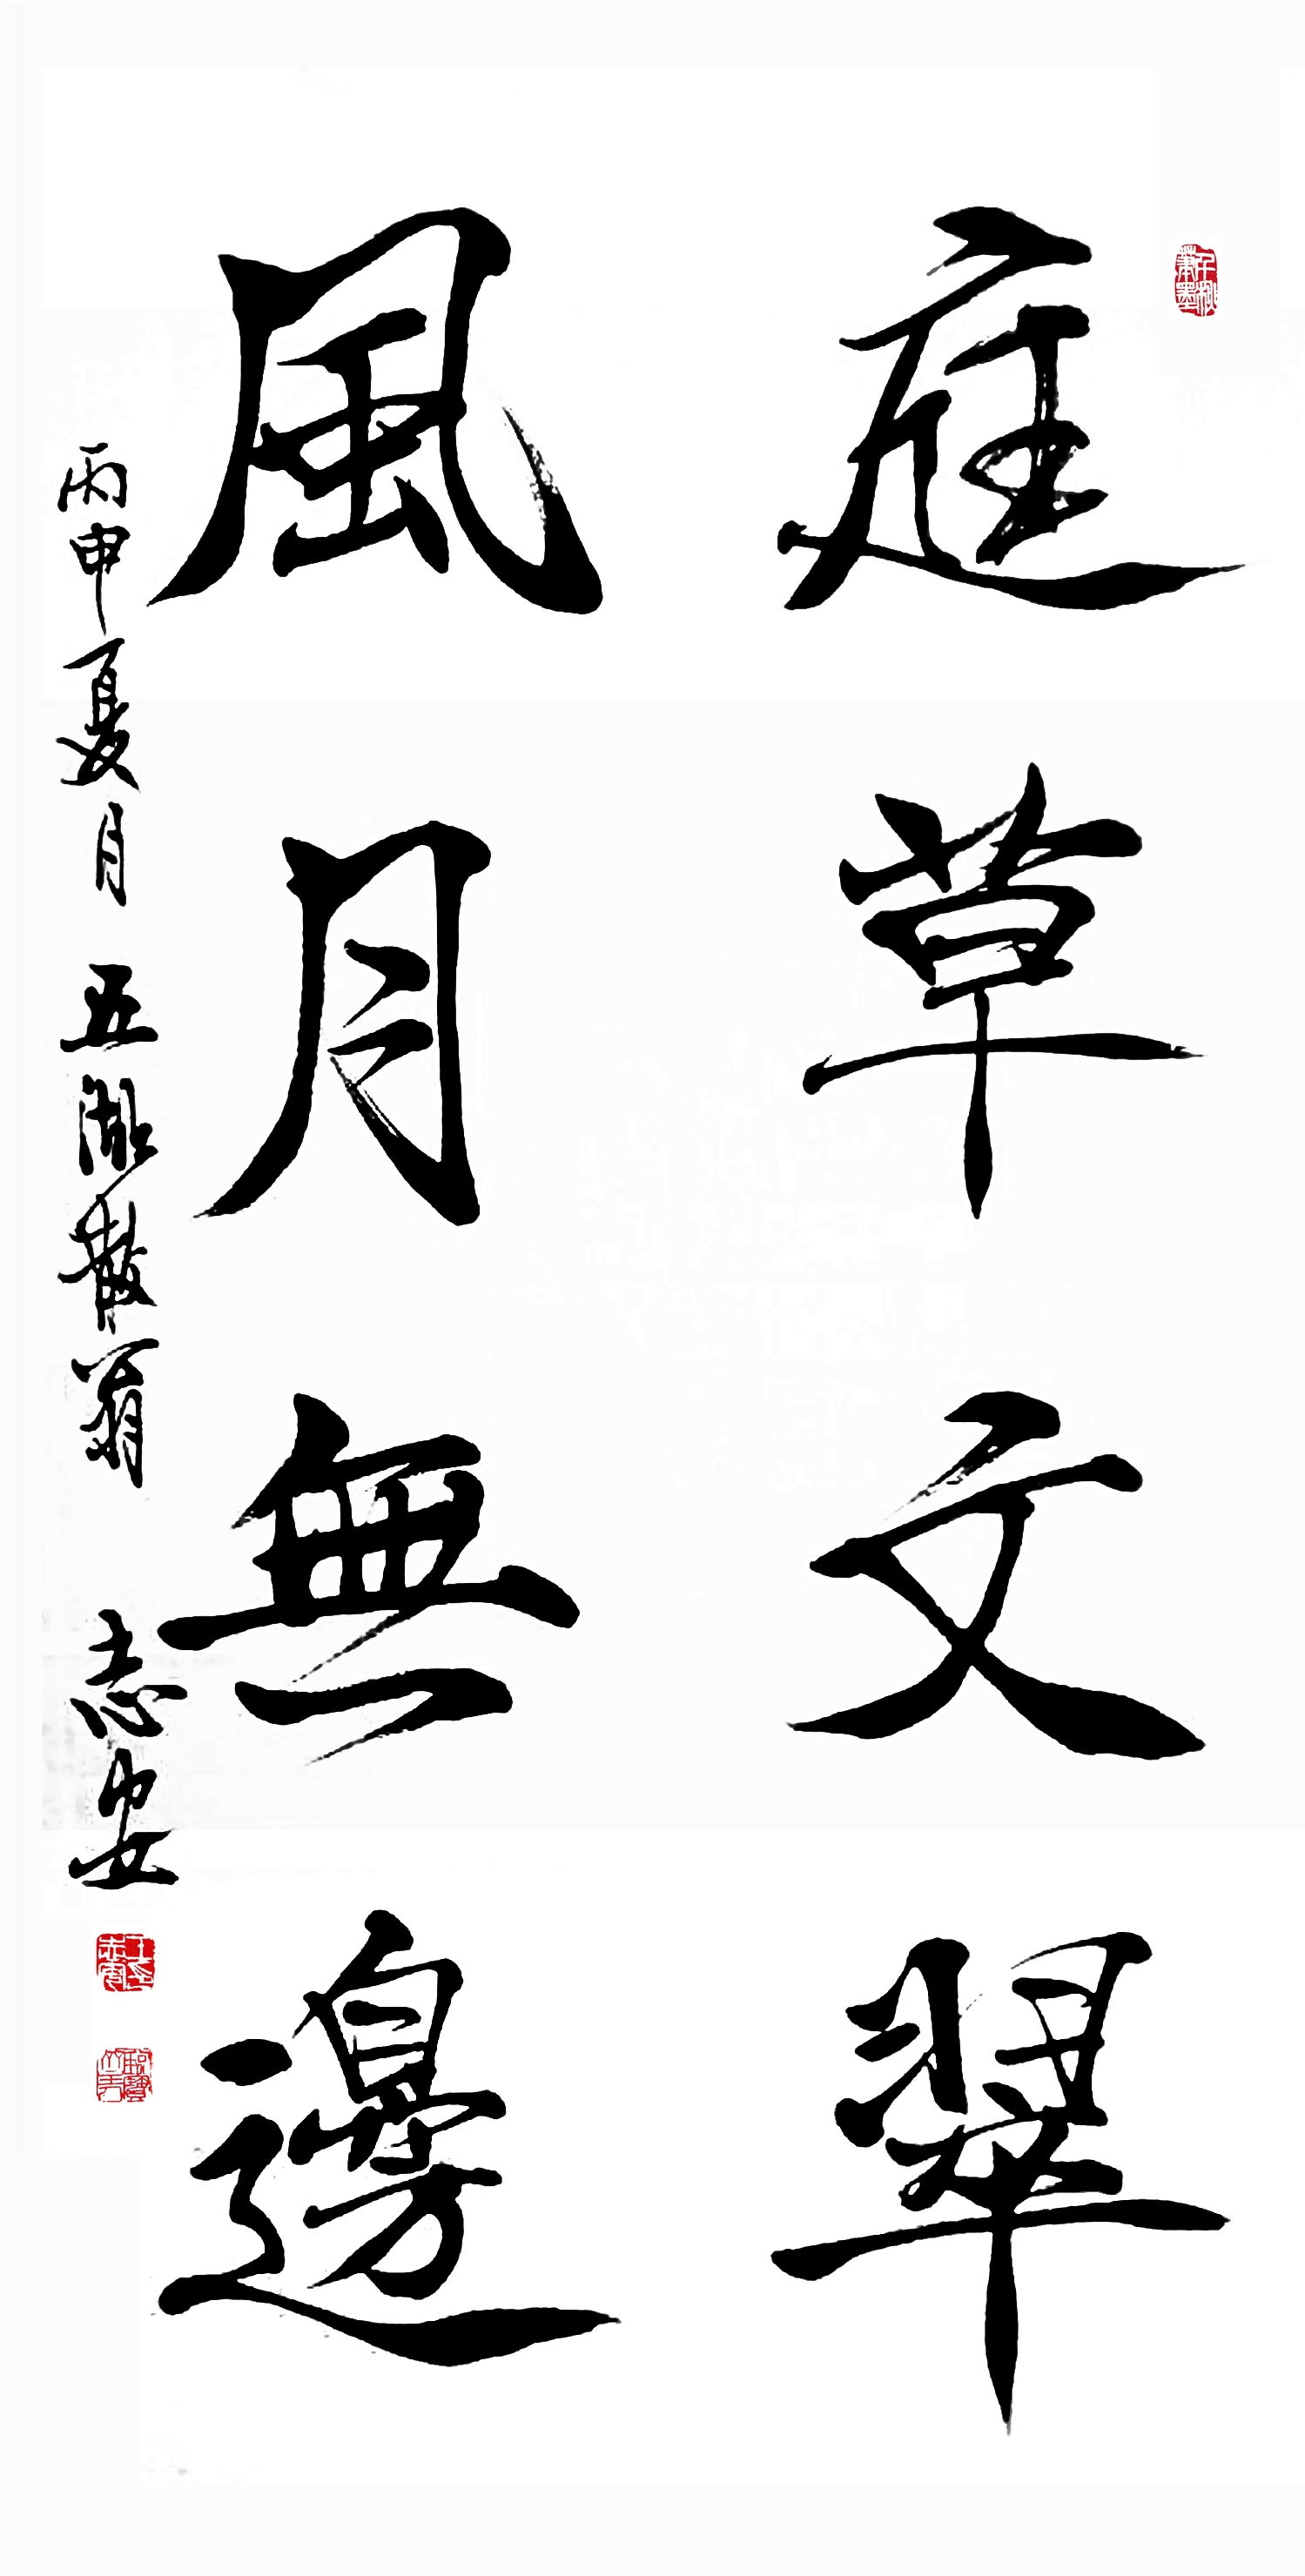 庭草文翠
風月無邊
丙申夏月 五湖散翁 志安